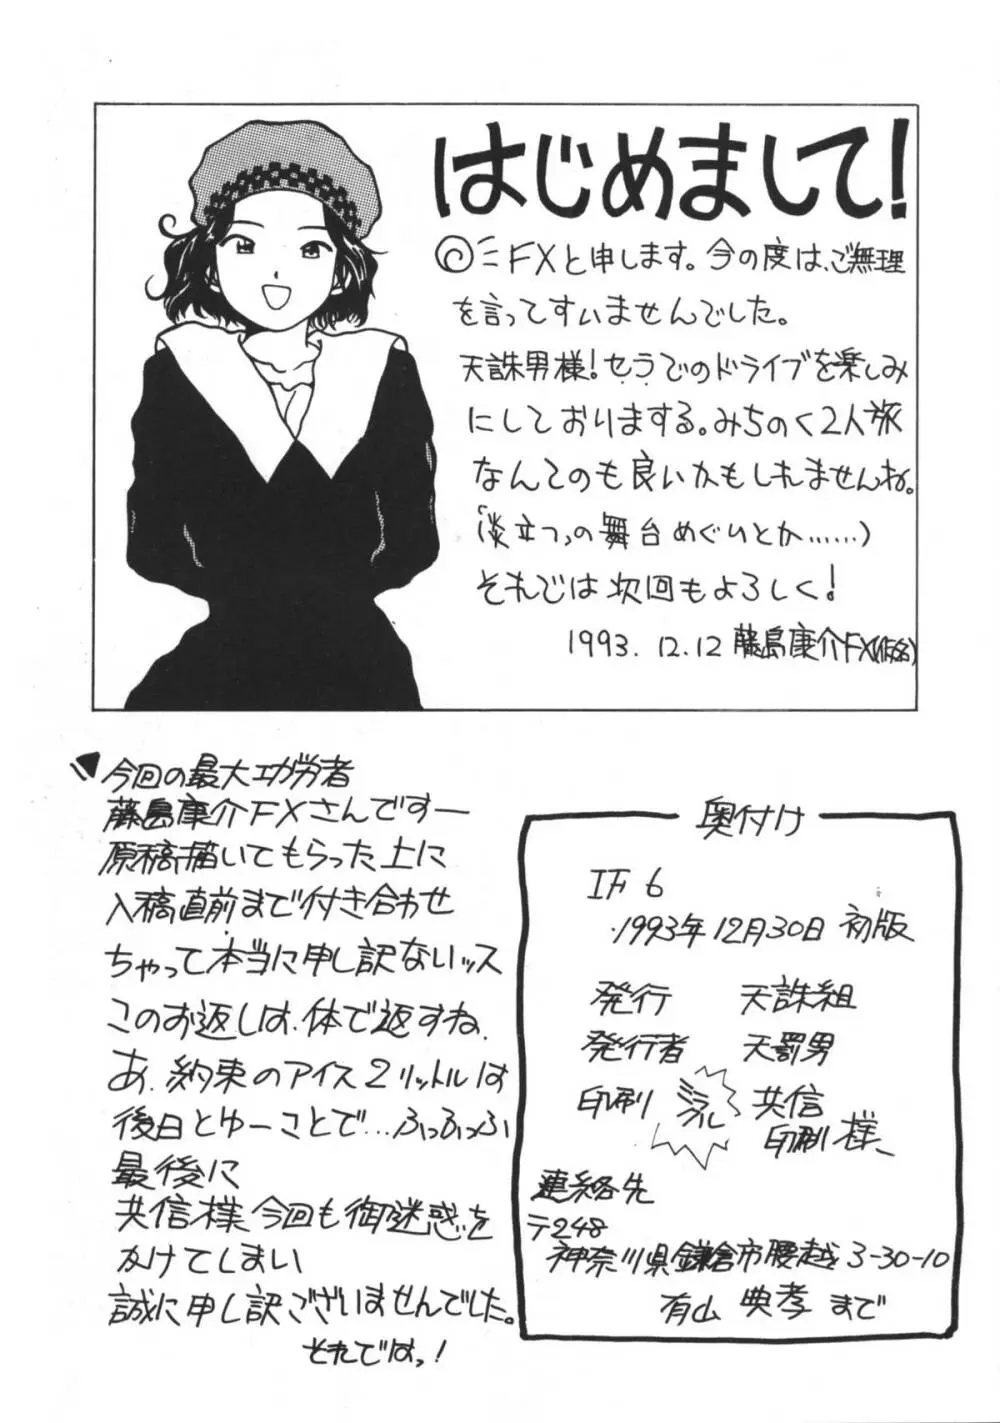 はじめまして!
FXと申します。今の度は、ご無理
を言ってすいませんでした。
天誅男様!セラでのドライブを楽しみ
にしておりまする。みちのく2人旅
なんてのも良いかもしれませんね。
立つ の舞台めぐりとか……)
それでは次回もよろしく!
1993.12.12 藤島康介FX(仮名)
今回の最大功労者
藤島康介FXさんですー
原稿描いてもらった上に
入稿直前まで付き合わせ
ちゃって本当に申し訳ないッス
このお返しは、体で返すね、
あ、約束のアイス2リットルは
後日とゆーことで…ふっふっふ
最後に
共信様、今回も御迷惑を
かけてしまい
誠に申し訳ございませんでした。
それではっ!
奥付け
IF 6
1993年12月30日 初版
発行 天誅組
発行者 天罰男
印刷 ミラクル 共信
印刷 様、
連絡先
〒248
神奈川県鎌倉市腰越3-30-10
有山 典孝 まで